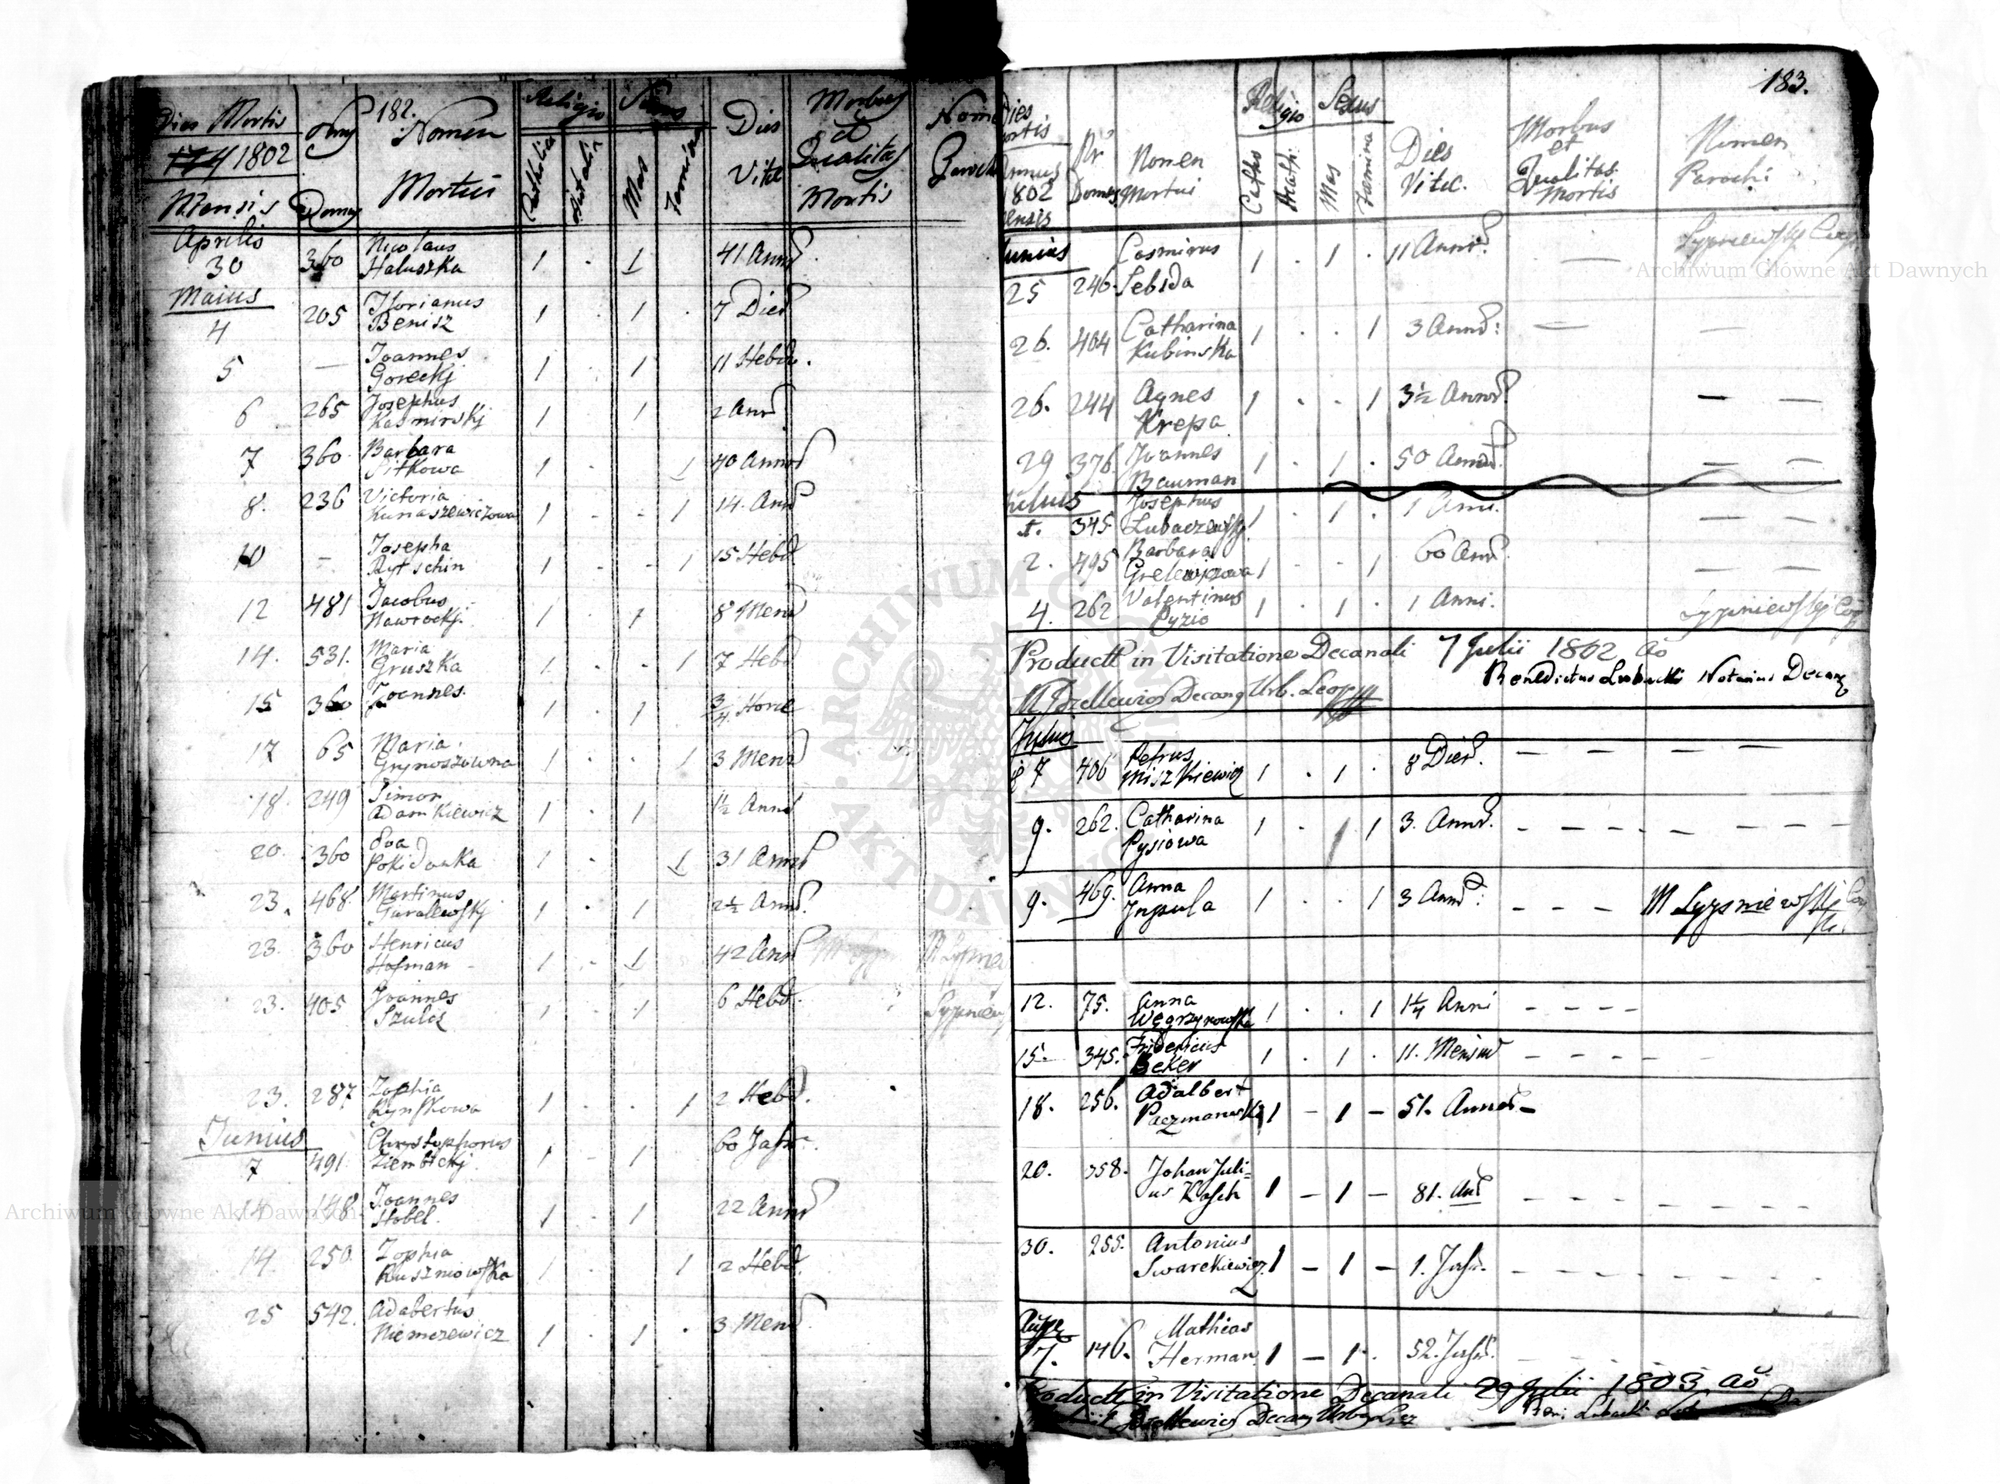 182.
Dies Mortis
1802
Mensis
Nrus Domus
Nomen
Mortui
Religio
Catholica
Sexus
Mas
Femina
Dies
Vitae
Morbus
et
Qualitas
Mortis
Nomen
Aprilis
30 360 Nicolaus
Haluszka 1 . 1 41 Annor
Maius
4 205 Florianus
Benisz 1 . 1 . 7 Dier
5 — Joannes
Goreckj 1 . 1 11 Hebd.
6 265 Josephus
Kasmirskj 1 1 2 Ann
7 360 Barbara
Sitkowa 1 . 1 40 Annor
8. 236 Victoria
Kunaszewiczowa 1 . . 1 14. Ann
10 – Josepha
Rytschin 1 . . 1 15 Hebd
12 481 Jacobus
Nawrockj. 1 . 1 8 Mens
14. 531. Maria
Gruszka 1 . . 1 7 Hebd
15 360 Joannes. 1 . 1 . 3/4 Horae
17 65 Maria
Grynoszowna 1 . . 1 3 Mens
18. 249 Simon
Adamkiewicz 1 . 1 1½ Ann
20. 360 Eva
Pokidanka 1 . 1 31 Annor
23. 468 Martinus
Guralewskj 1 . 1 2½ Ann.
23. 360 Henricus
Hofman 1 . 1 42 Ann
23. 405 Joannes
Szulcz 1 . 1 6 Hebd.
23. 287 Zophia
Rynskowa 1 . . 1 2 Hebd.
Junius
7 491 Chrystophorus
Ziembickj. 1 . 1 60 Jahr.
14 148 Joannes
Hobel. 1 . 1 22 Annor
14. 250 Zophia
Kuszniowska 1 . . 1 2 Hebd.
25 542. Adabertus
Niemczewicz 1 . 1 . 3 Mens
183.
Dies
Mortis
Annus
1802
Mensis
Nr
Domus
Nomen
Mortui
Religio
Cathol
Sexus
Mas
Femina
Dies
Vitae.
Morbus
et
Qualitas
Mortis
Nomen
Parochi
Junius
25 246. Casmirus
Sebsda 1 . 1 . 11 Annor — Lypniewskj Coop
26. 404 Catharina
Kubinska 1 . . 1 3 Ann: — —
26. 244 Agnes
Krepa 1 . . 1 3½ Annor — —
29 376 Joannes
Bauman 1 . 1 . 50 Annor. — —
Julius
1. 345 Josephus
Lubaczewskj 1 . 1 . 1 Anni. — —
2. 495 Barbara
Grelewiczowa 1 . . 1 60 Ann — —
4. 262 Valentinus
Pyzio 1 . 1 . 1 Anni. Lypniewskj Coop
Product in Visitatione Decanali 7 Julii 1802 Ao
Benedictus Lubacki Notarius Decan
Decang Urb. Leop
Julius
8 7 406 Petrus
Miszkiewicz 1 . 1 . 8 Dier. — — — —
9. 262. Catharina
Pysiowa 1 . 1 3. Annor. – – – – – – – –
9. 469. Anna
Inpula 1 . . 1 3 Ann: – – – M Lypniewskj Coop
12. 75. Anna
Węgrzynowska 1 . . 1 1¼ Anni – – – –
15. 345. Fridericus
Beker 1 . 1 . 11. Mensiu – – – – – –
18. 256. Adalbert
Paczmanowski 1 – 1 – 51. Annor –
20. 358. Johan Juli-
us Kasch 1 – 1 – 81. An – – – –
30. 255. Antonius
Swarckiewicz. 1 – 1 – 1. Jahr. – – – – – – –
17. 146. Mathias
Herman 1 – 1 . 52. Jahr.
Product in Visitatione Decanali 29 Julii 1803 Ao
Decang Urbis
ARCHIWUM GŁÓWNE AKT DAWNYCH
Archiwum Główne Akt Dawnych
Archiwum Główne Akt Dawnych